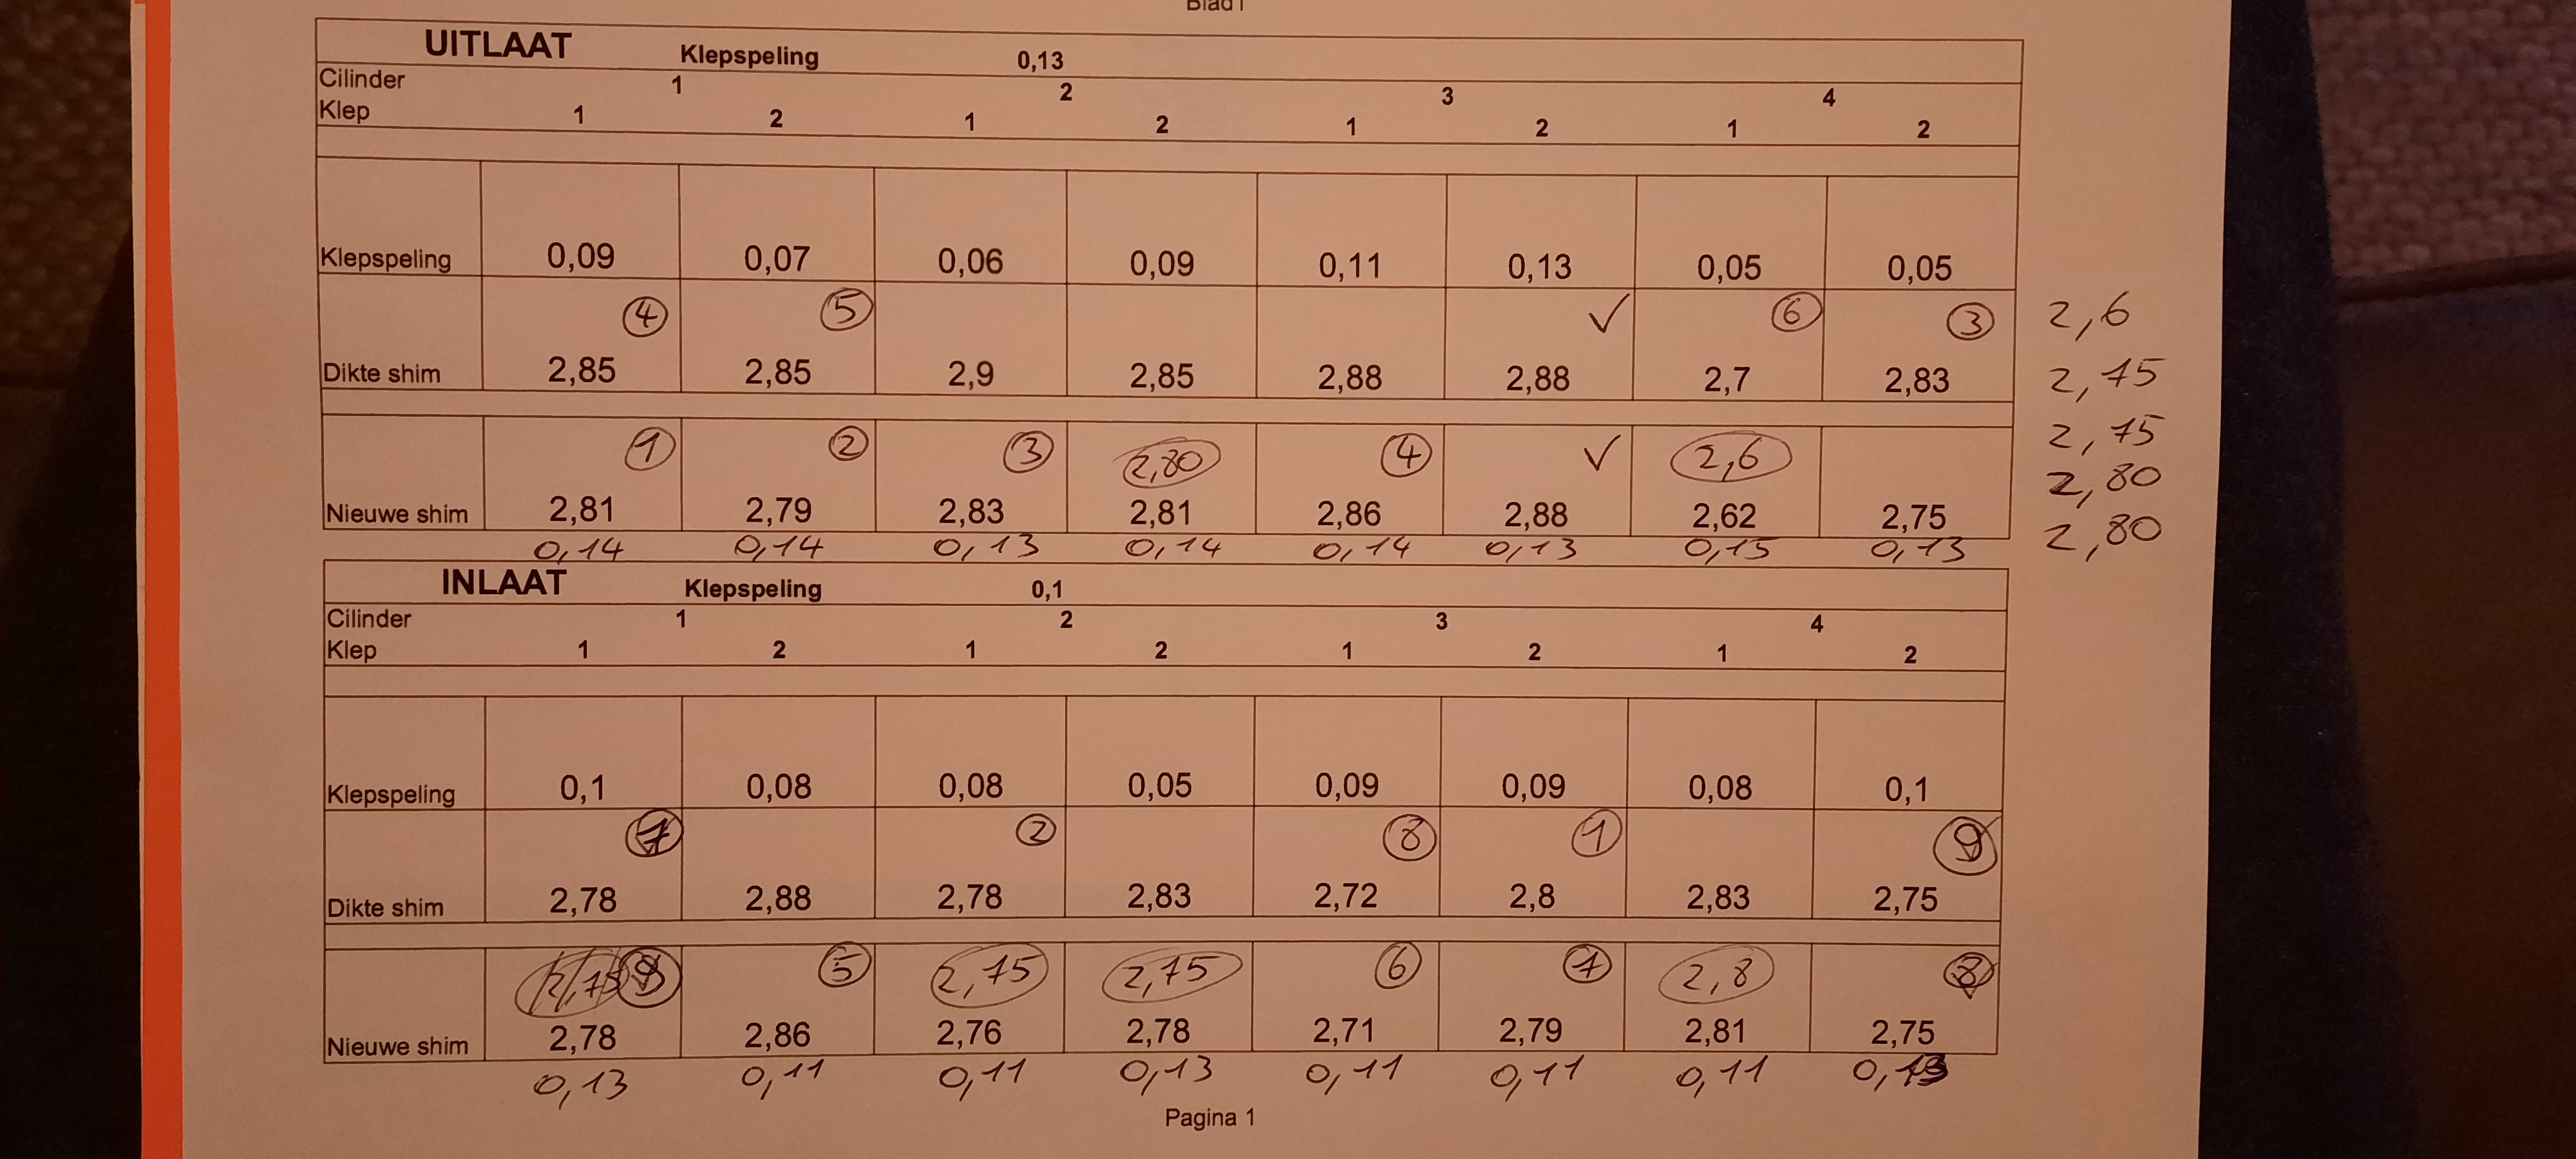 Blad1
UITLAAT Klepspeling 0,13
Cilinder 1 2 3 4
Klep 1 2 1 2 1 2 1 2
Klepspeling 0,09 0,07 0,06 0,09 0,11 0,13 0,05 0,05
4 5 ✓ 6 3 2,6
Dikte shim 2,85 2,85 2,9 2,85 2,88 2,88 2,7 2,83 2,75
1 2 3 2,80 4 ✓ 2,6 2,75
2,80
Nieuwe shim 2,81 2,79 2,83 2,81 2,86 2,88 2,62 2,75 2,80
0,14 0,14 0,13 0,14 0,14 0,13 0,15 0,13
INLAAT Klepspeling 0,1
Cilinder 1 2 3 4
Klep 1 2 1 2 1 2 1 2
Klepspeling 0,1 0,08 0,08 0,05 0,09 0,09 0,08 0,1
7 2 8 1 9
Dikte shim 2,78 2,88 2,78 2,83 2,72 2,8 2,83 2,75
9 5 2,75 2,75 6 7 2,8 8
Nieuwe shim 2,78 2,86 2,76 2,78 2,71 2,79 2,81 2,75
0,13 0,11 0,11 0,13 0,11 0,11 0,11
Pagina 1